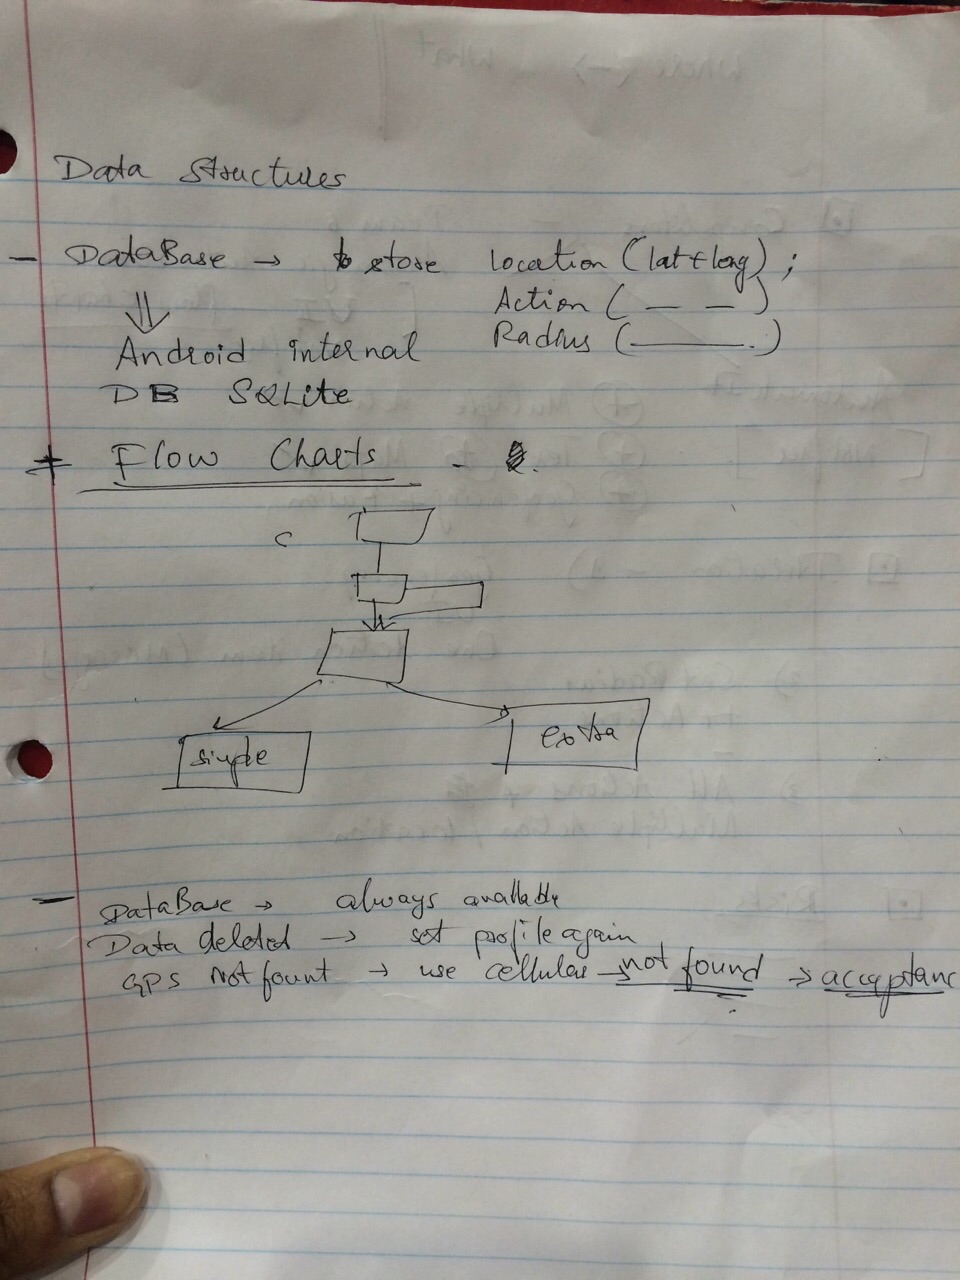 Data Structures
- DataBase → to store location (lat + long) ;
Action ( — — )
Radius ( ——— . )
⇓
Android internal
DB SQLite
+ Flow Charts -
C
simple
extra
- DataBase → always available
Data deleted → set profile again
GPS not fount → use cellular → not found → acceptanc